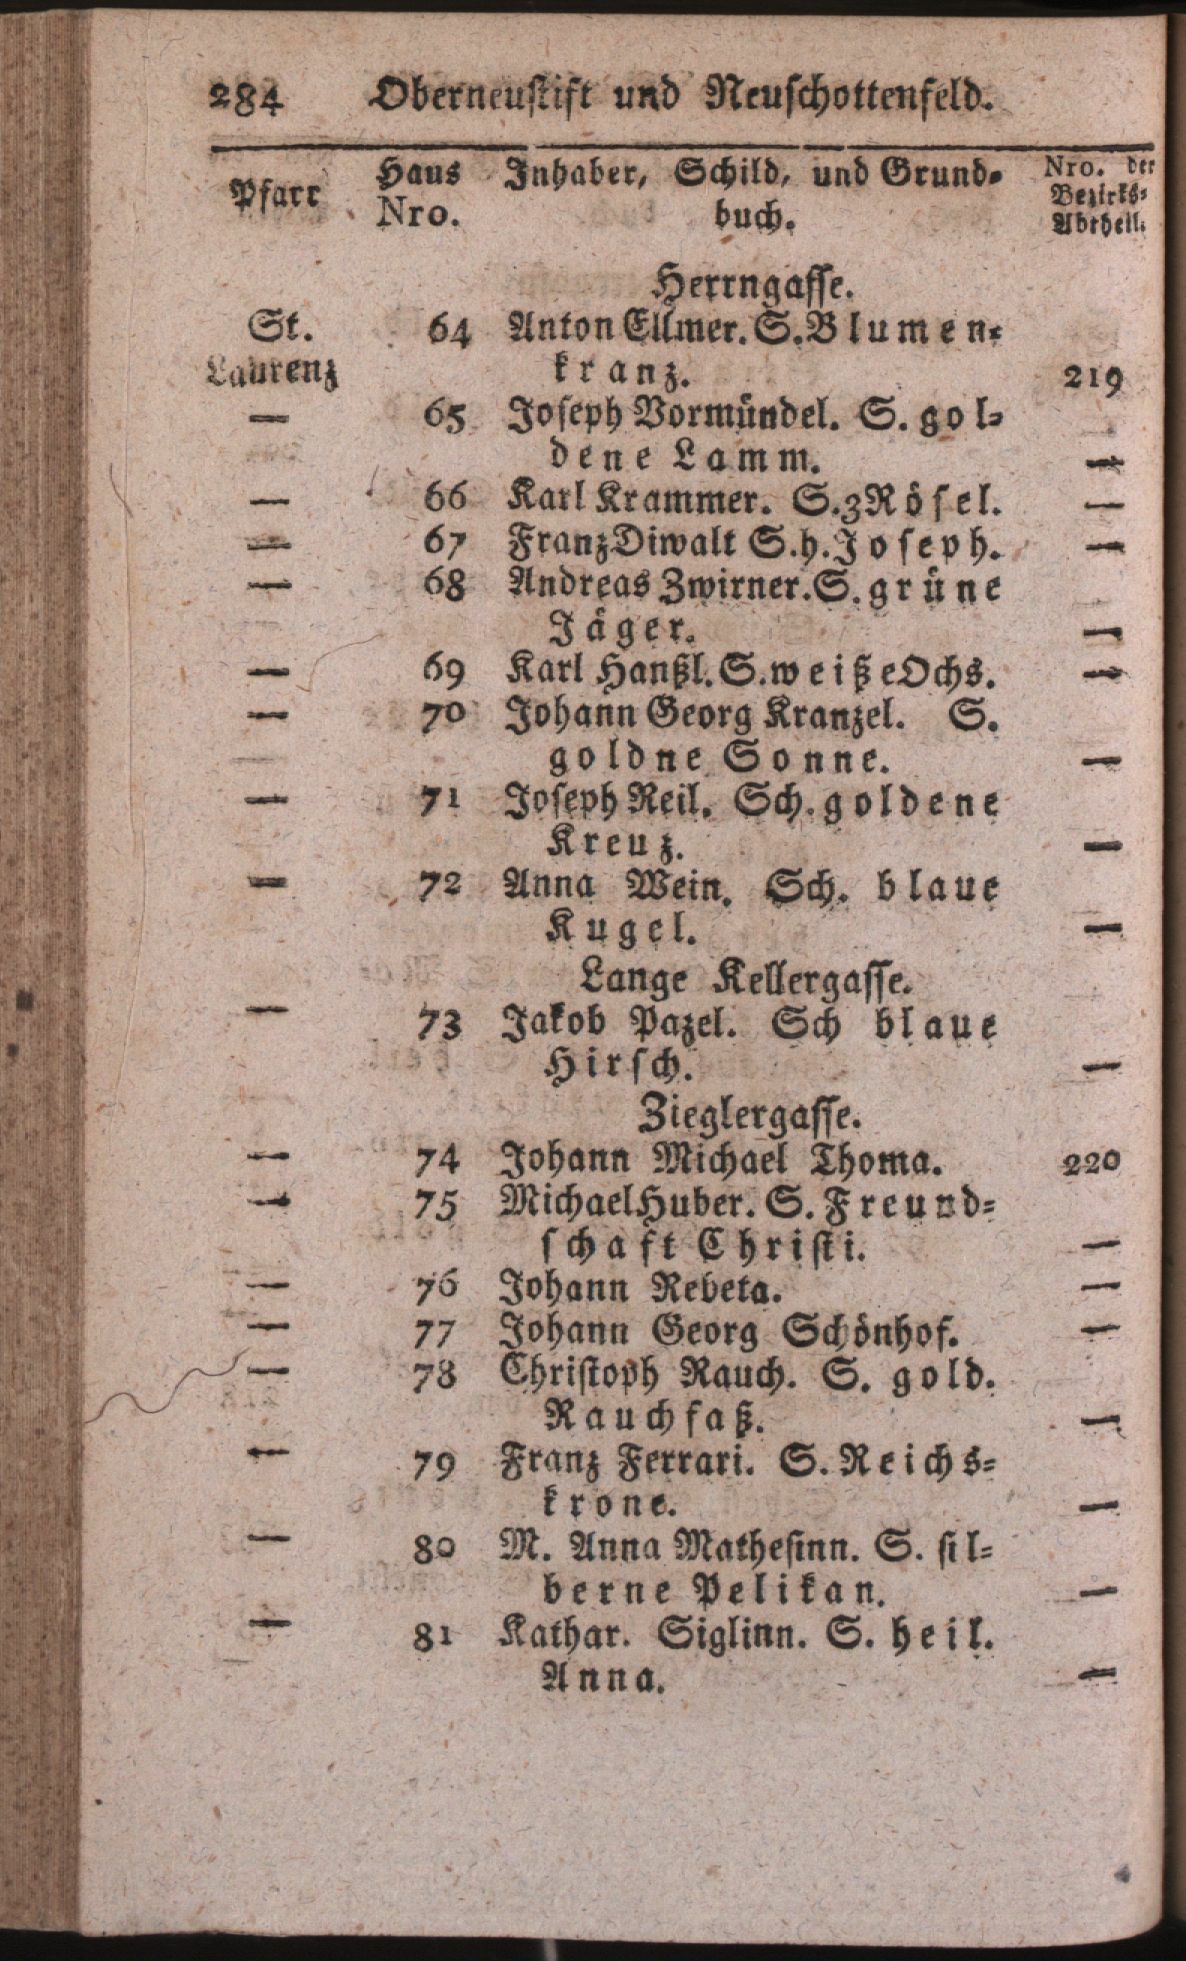 284 Oberneustift und Neuschottenfeld.
Pfarr Haus Nro. Inhaber, Schild, und Grund- Nro. der
buch. Bezirks-
Abtheil.
Herrngasse.
St. 64 Anton Ellmer. S. Blumen-
Laurenz kranz. 219
— 65 Joseph Vormündel. S. gol-
dene Lamm. —
— 66 Karl Krammer. S. 3 Rösel. —
— 67 Franz Diwalt S. h. Joseph. —
— 68 Andreas Zwirner. S. grüne
Jäger. —
— 69 Karl Hanßl. S. weiße Ochs. —
— 70 Johann Georg Kranzel. S.
goldne Sonne. —
— 71 Joseph Reil. Sch. goldene
Kreuz. —
— 72 Anna Wein. Sch. blaue
Kugel. —
Lange Kellergasse.
— 73 Jakob Pazel. Sch blaue
Hirsch. —
Zieglergasse.
— 74 Johann Michael Thoma. 220
— 75 Michael Huber. S. Freund-
schaft Christi. —
— 76 Johann Rebeta. —
— 77 Johann Georg Schönhof. —
— 78 Christoph Rauch. S. gold.
Rauchfaß. —
— 79 Franz Ferrari. S. Reichs-
krone. —
— 80 M. Anna Mathesinn. S. sil-
berne Pelikan. —
— 81 Kathar. Siglinn. S. heil.
Anna. —